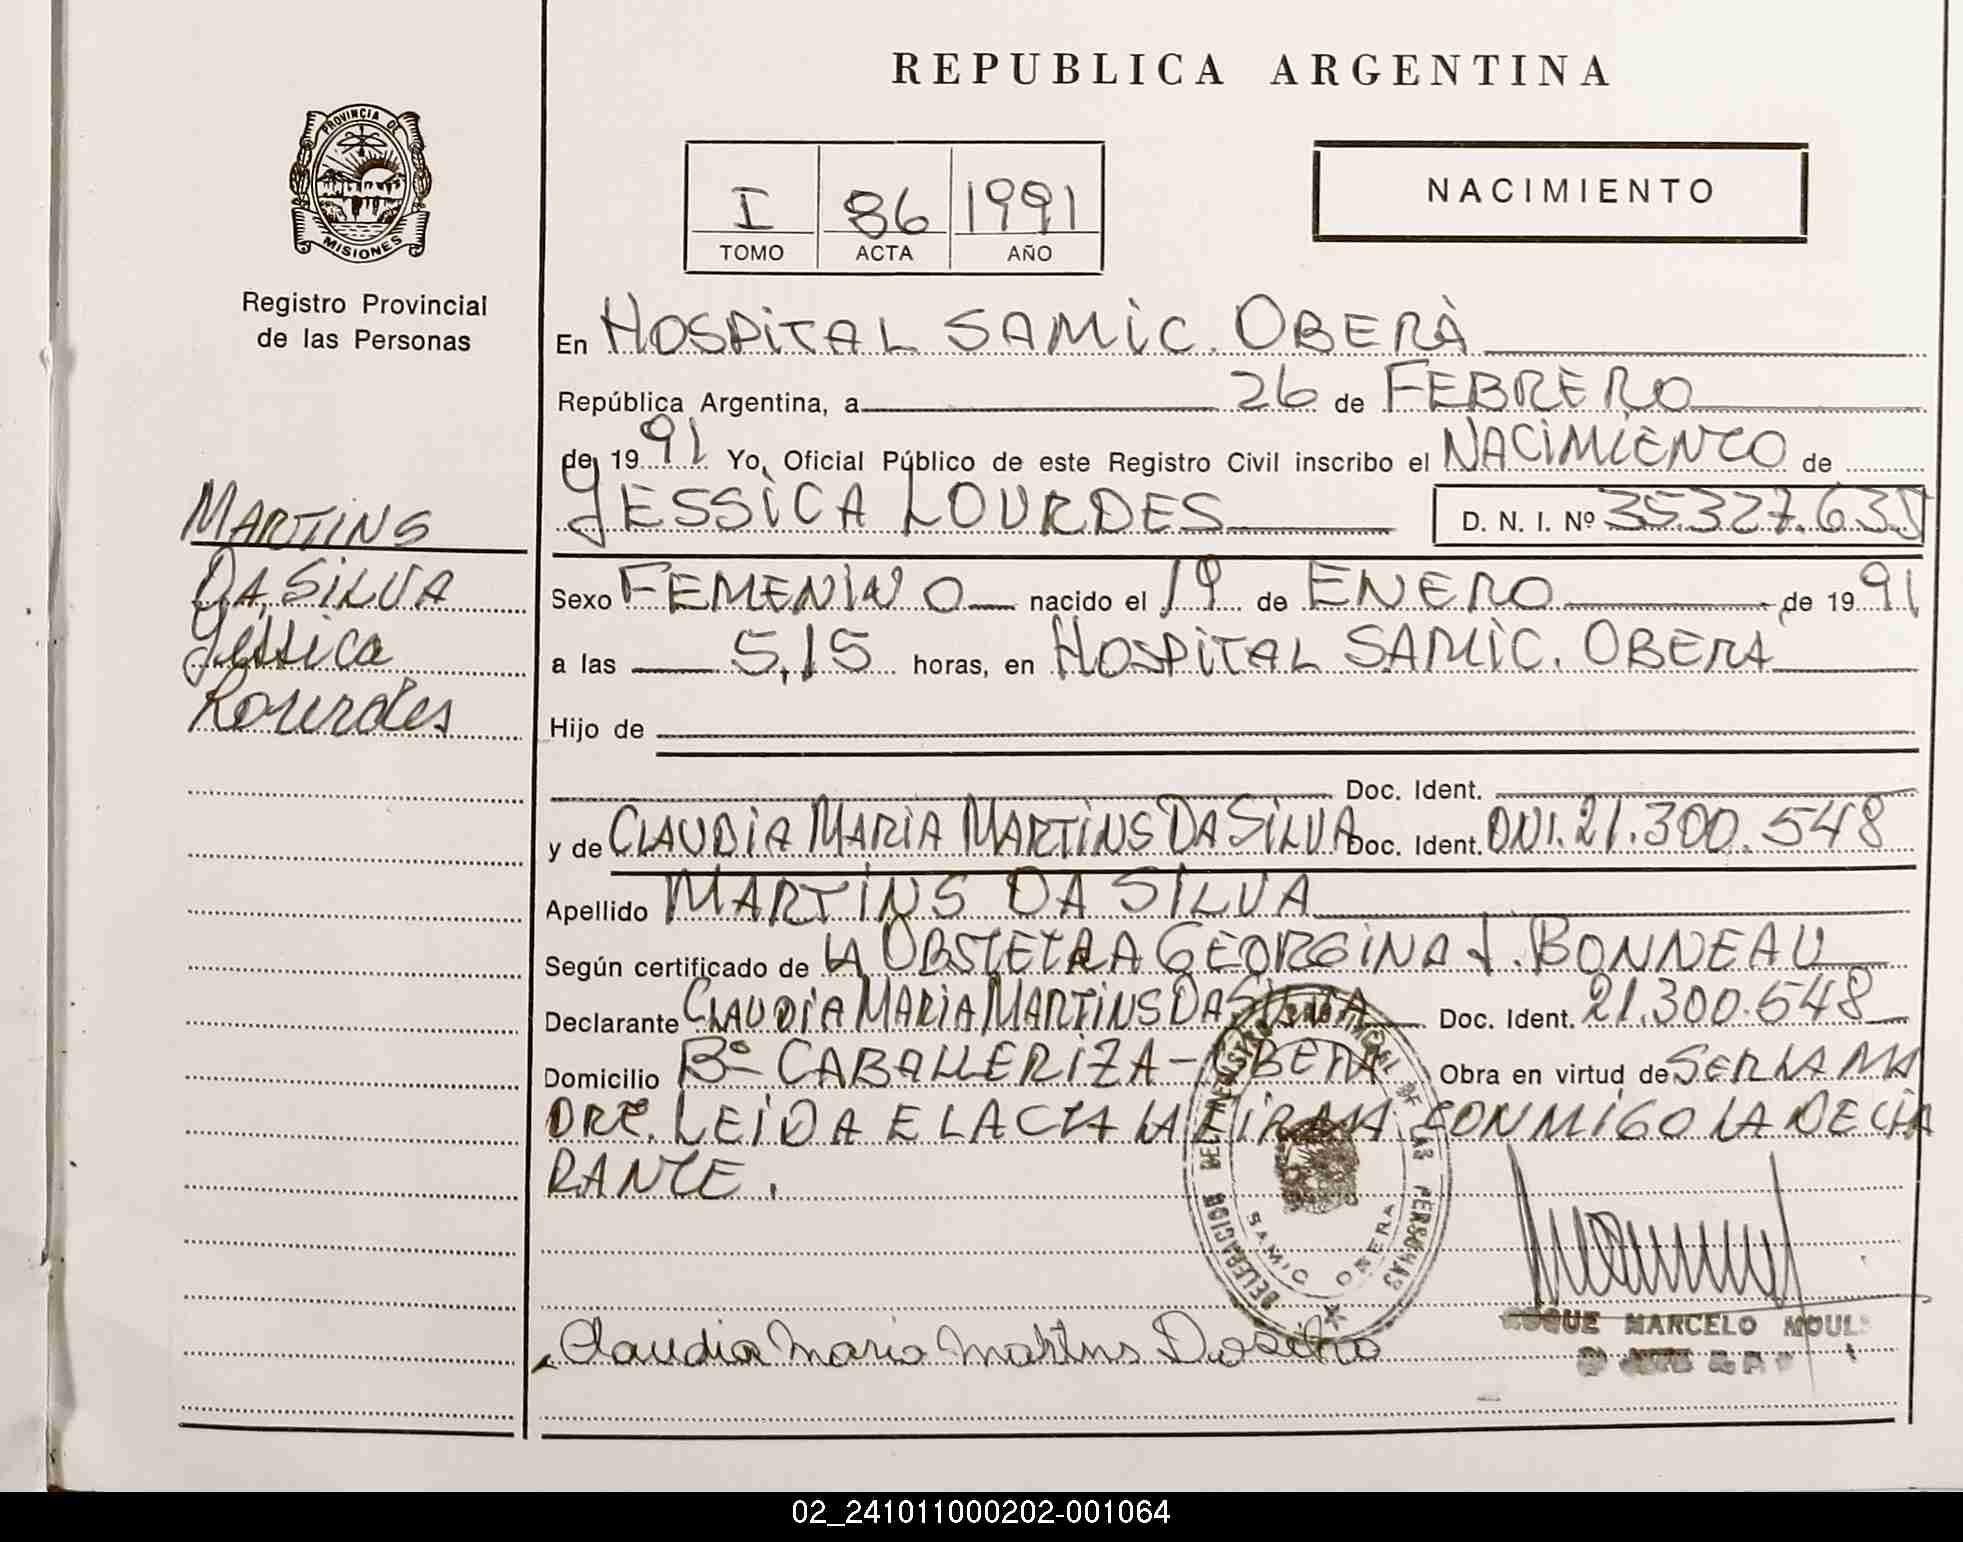 REPUBLICA ARGENTINA
PROVINCIA DE
MISIONES
Registro Provincial
de las Personas
I 86 1991
TOMO ACTA AÑO
NACIMIENTO
En HOSPITAL SAMIC. OBERÀ
República Argentina, a 26 de FEBRERO
de 1991 Yo, Oficial Público de este Registro Civil inscribo el NACIMIENTO de
JESSICA LOURDES D. N. I. Nº 35.327.635
MARTINS
DA SILVA
Jessica
Lourdes
Sexo FEMENINO nacido el 19 de ENERO de 1991
a las 5,15 horas, en HOSPITAL SAMIC. OBERA
Hijo de
Doc. Ident.
y de CLAUDIA MARIA MARTINS DA SILVA Doc. Ident. DNI. 21.300.548
Apellido MARTINS DA SILVA
Según certificado de LA OBSTETRA GEORGINA J. BONNEAU
Declarante CLAUDIA MARIA MARTINS DA SILVA Doc. Ident. 21.300.548
Domicilio Bº CABALLERIZA - OBERA Obra en virtud de SER LA MA
DRE. LEIDA EL ACTA LA FIRMA CONMIGO LA DECLA
RANTE.
DELEGACION DEL REGISTRO PROVINCIAL DE LAS PERSONAS
SAMIC OBERA
Claudia Maria Martins Dasilva
ROQUE MARCELO MOUL
02_241011000202-001064